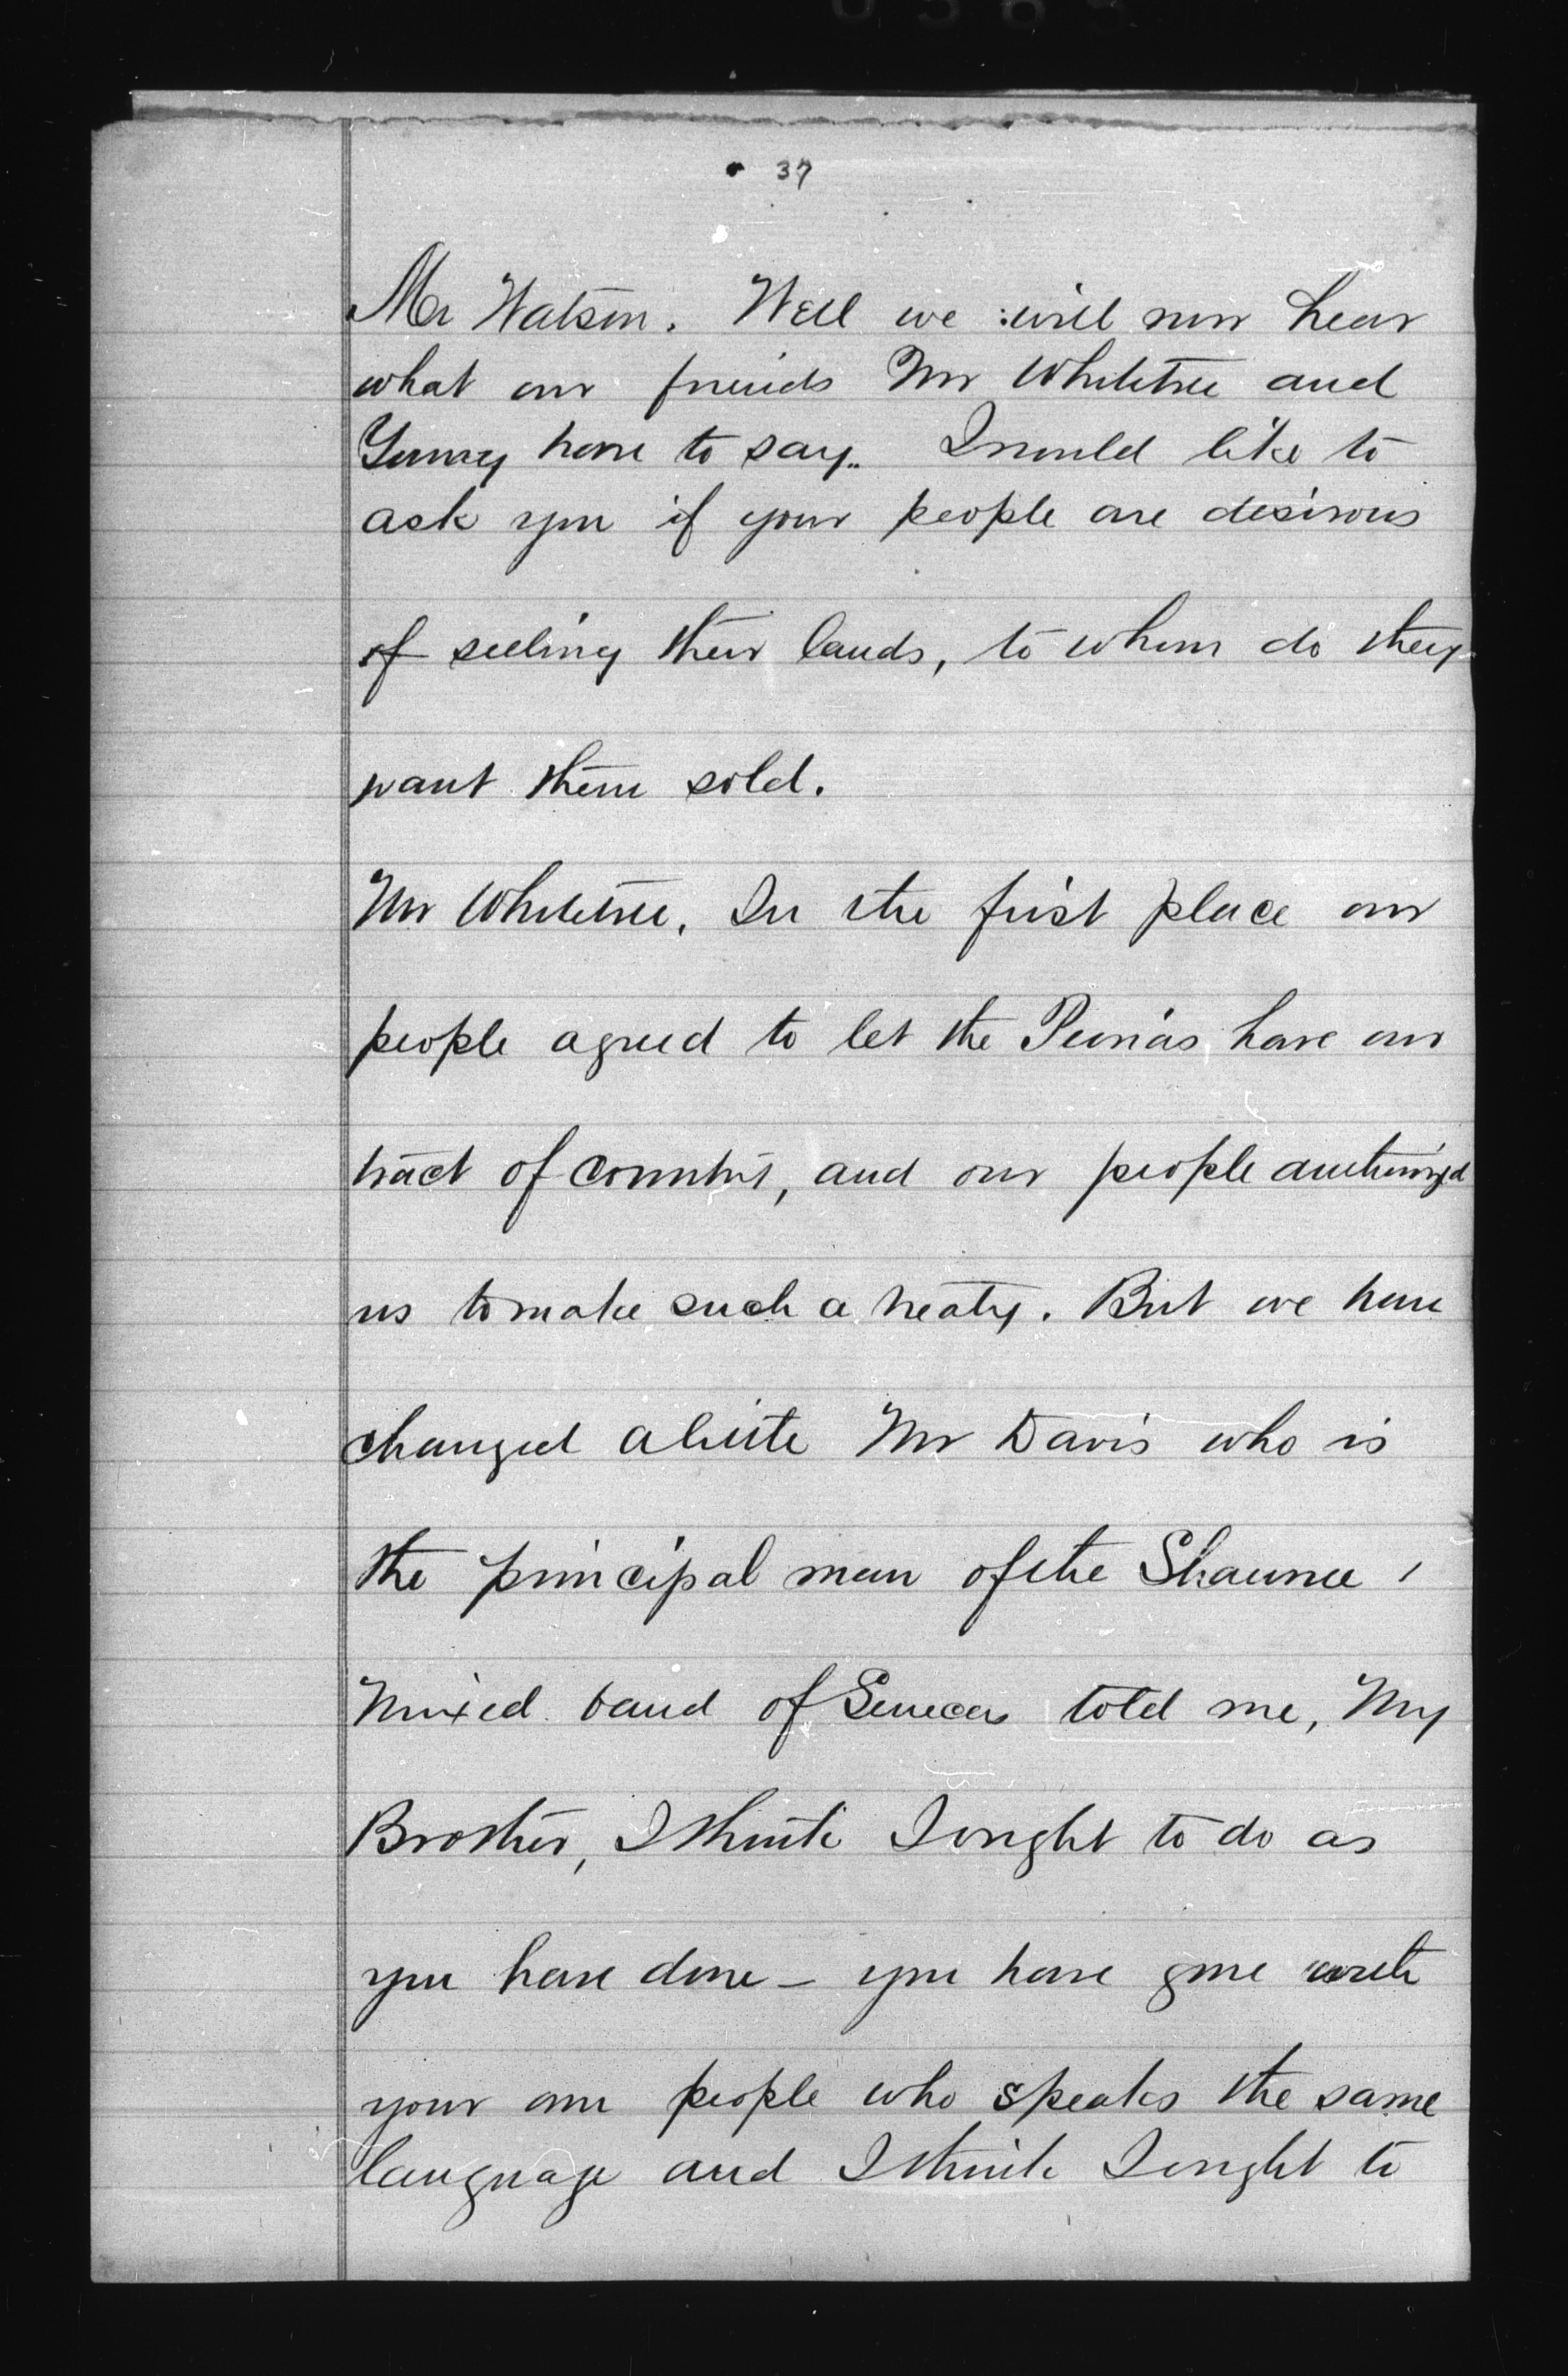 37
Mr Watson. Well we will now hear
what our friends Mr Whitetree and
Young have to say. I would like to
ask you if your people are desirous
of selling their lands, to whom do they
want them sold.
Mr Whitetree. In the first place our
people agreed to let the Peorias have our
tract of country, and our people authorized
us to make such a treaty. But we have
changed a little Mr Davis who is
the principal man of the Shawnee
Mixed band of Senecas told me, My
Brother, I think I ought to do as
you have done - you have gone with
your own people who speaks the same
language and I think I ought to